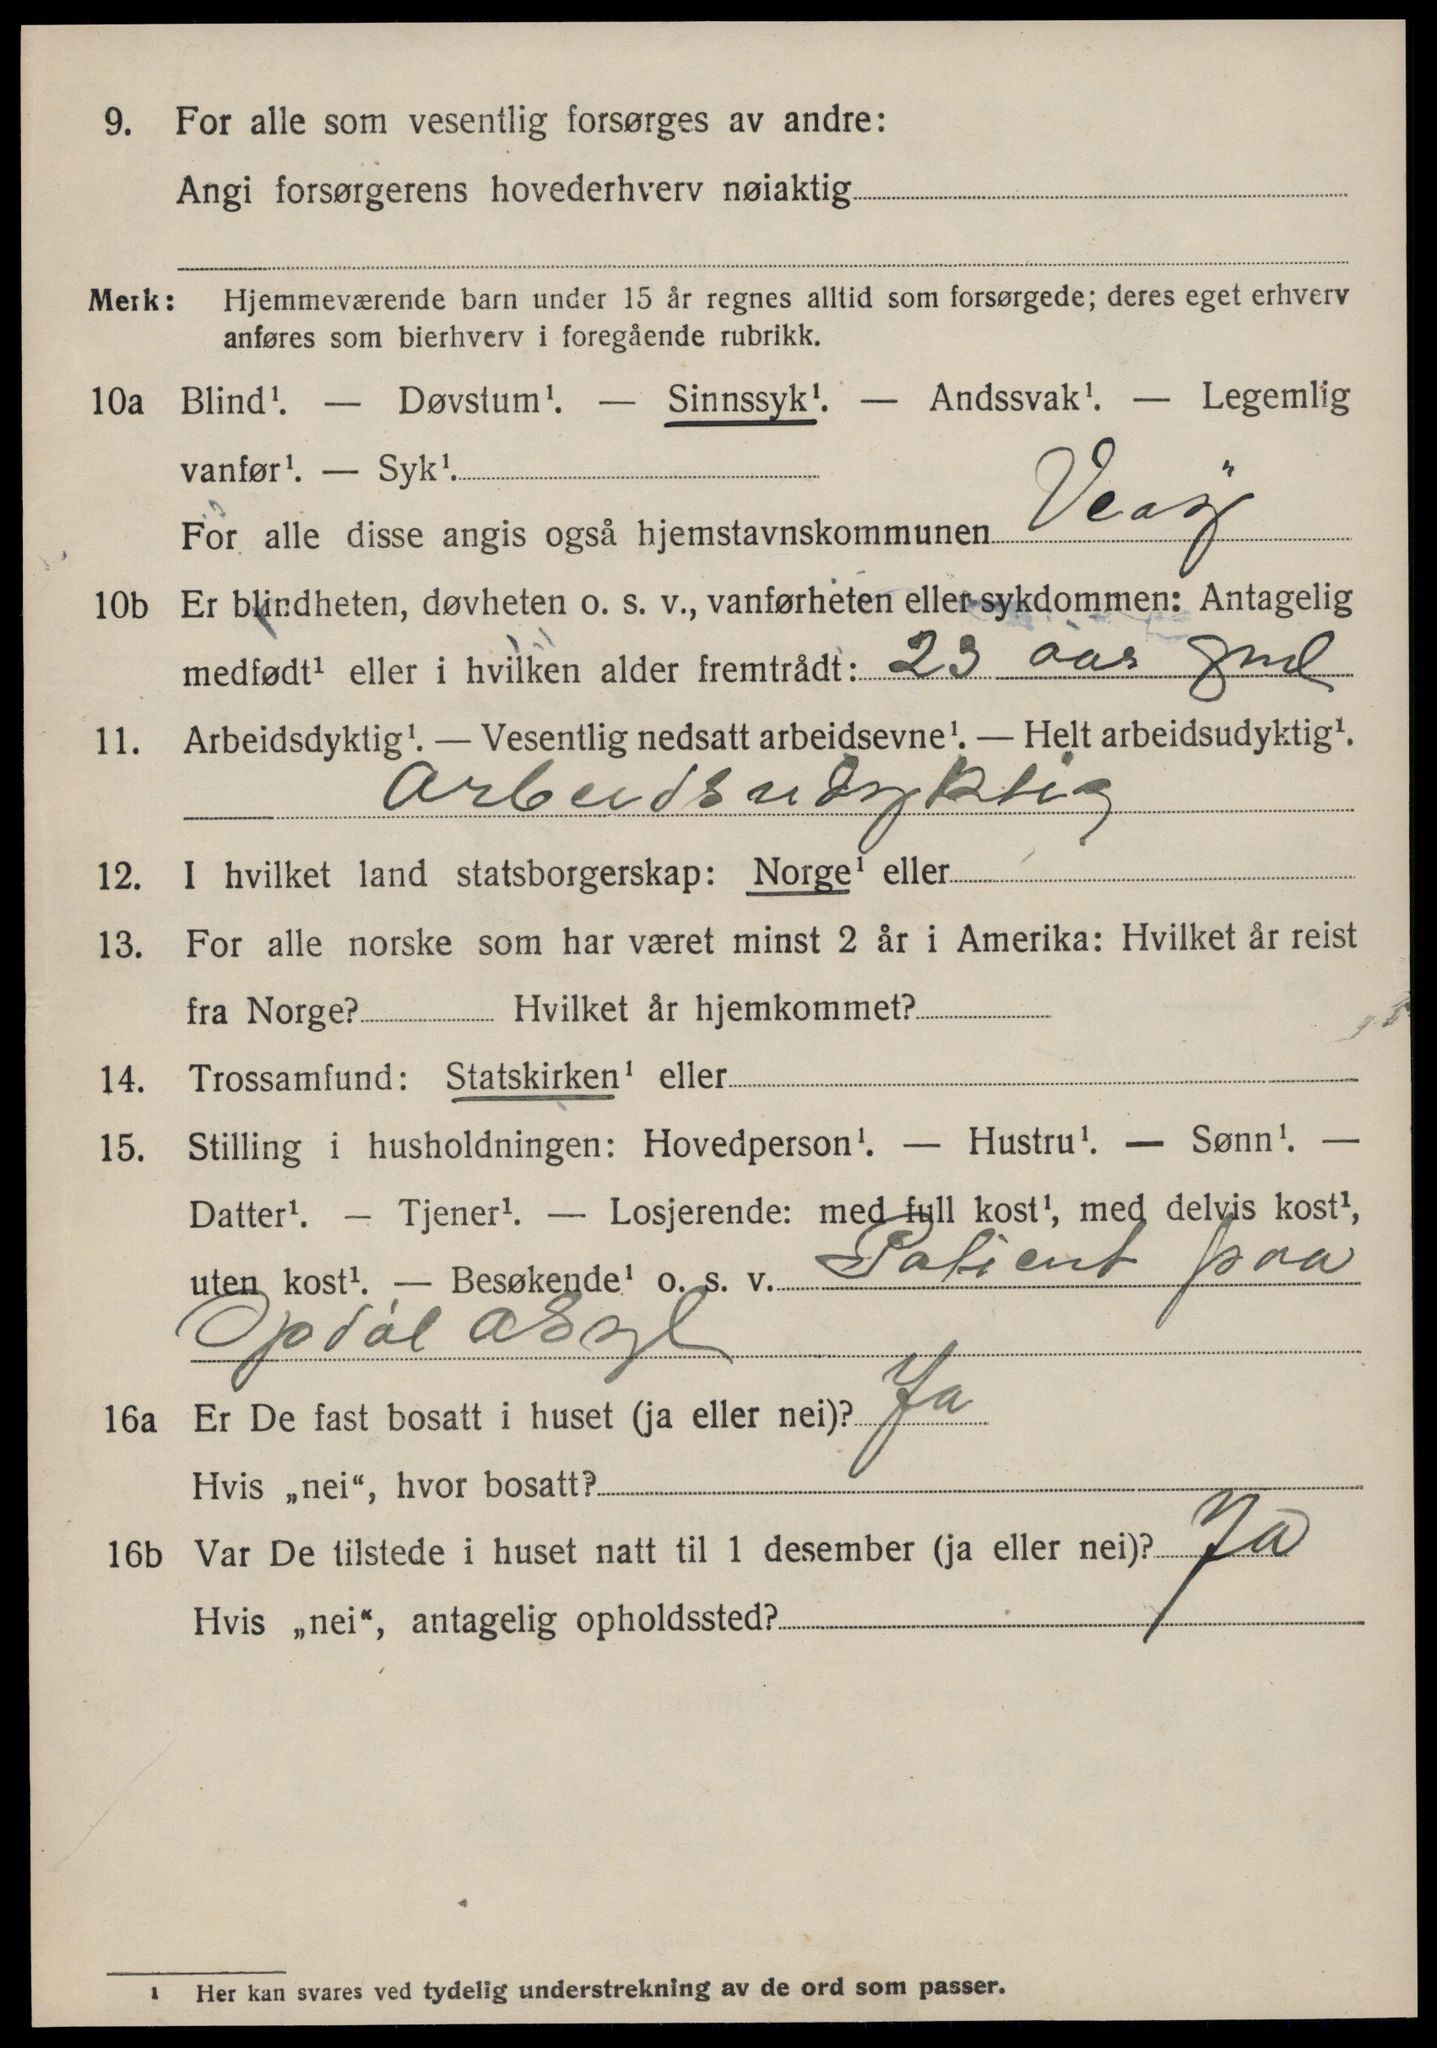 9. For alle som vesentlig forsørges av andre:
Angi forsørgerens hovederhverv nøiaktig
Merk: Hjemmeværende barn under 15 år regnes alltid som forsørgede; deres eget erhverv
anføres som bierhverv i foregående rubrikk.
10a Blind¹. — Døvstum¹. — Sinnssyk¹. — Andssvak¹. — Legemlig
vanfør¹. — Syk¹.
For alle disse angis også hjemstavnskommunen Veøy
10b Er blindheten, døvheten o. s. v., vanførheten eller sykdommen: Antagelig
medfødt¹ eller i hvilken alder fremtrådt: 23 aar gml
11. Arbeidsdyktig¹. — Vesentlig nedsatt arbeidsevne¹. — Helt arbeidsudyktig¹.
Arbeidsudyktig
12. I hvilket land statsborgerskap: Norge¹ eller
13. For alle norske som har været minst 2 år i Amerika: Hvilket år reist
fra Norge? Hvilket år hjemkommet?
14. Trossamfund: Statskirken¹ eller
15. Stilling i husholdningen: Hovedperson¹. — Hustru¹. — Sønn¹. —
Datter¹. — Tjener¹. — Losjerende: med full kost¹, med delvis kost¹,
uten kost¹. — Besøkende¹ o. s. v. Patient paa
Opdøl asyl
16a Er De fast bosatt i huset (ja eller nei)? Ja
Hvis „nei“, hvor bosatt?
16b Var De tilstede i huset natt til 1 desember (ja eller nei)? Ja
Hvis „nei“, antagelig opholdssted?
¹ Her kan svares ved tydelig understrekning av de ord som passer.